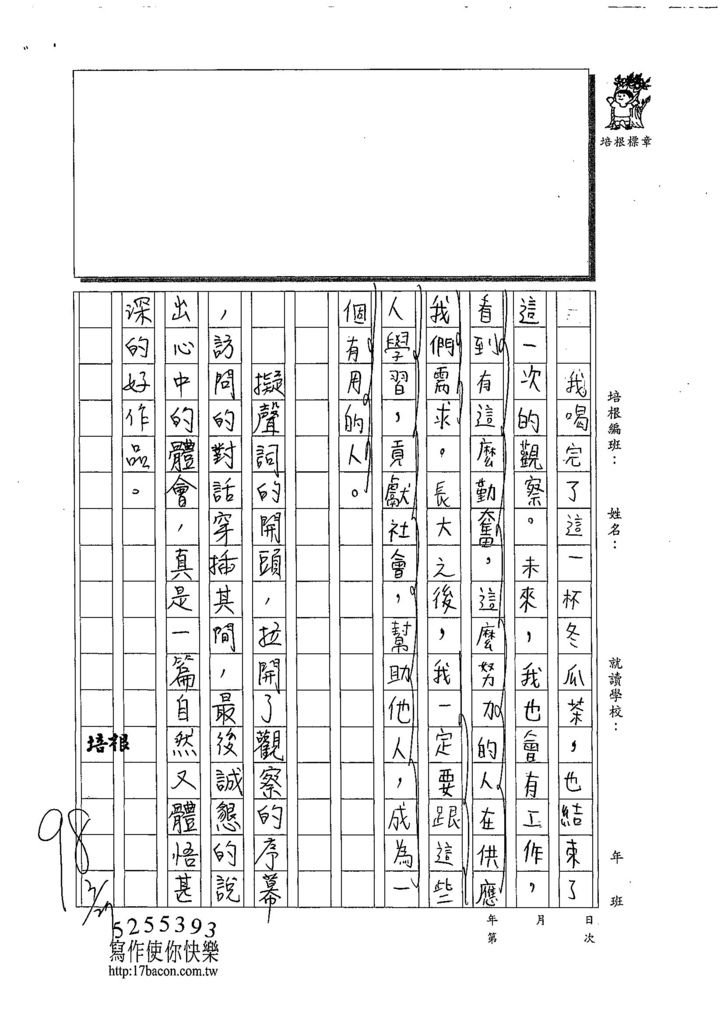 培根標章
培根編班：
姓名：
就讀學校：
年
班
日
次
月
年
第
我喝完了這一杯冬瓜茶，也結束了
這一次的觀察。未來，我也會有工作，
看到有這麼勤奮，這麼努力加的人在供應
我們需求。長大之後，我一定要跟這些
人學習，貢獻社會，幫助他人，成為一
個有用的人。
擬聲詞的開頭，拉開了觀察的序幕
，訪問的對話穿插其間，最後誠懇的說
出心中的體會，真是一篇自然又體悟甚
深的好作品。
培根
98
2/27
5255393
寫作使你快樂
http:17bacon.com.tw